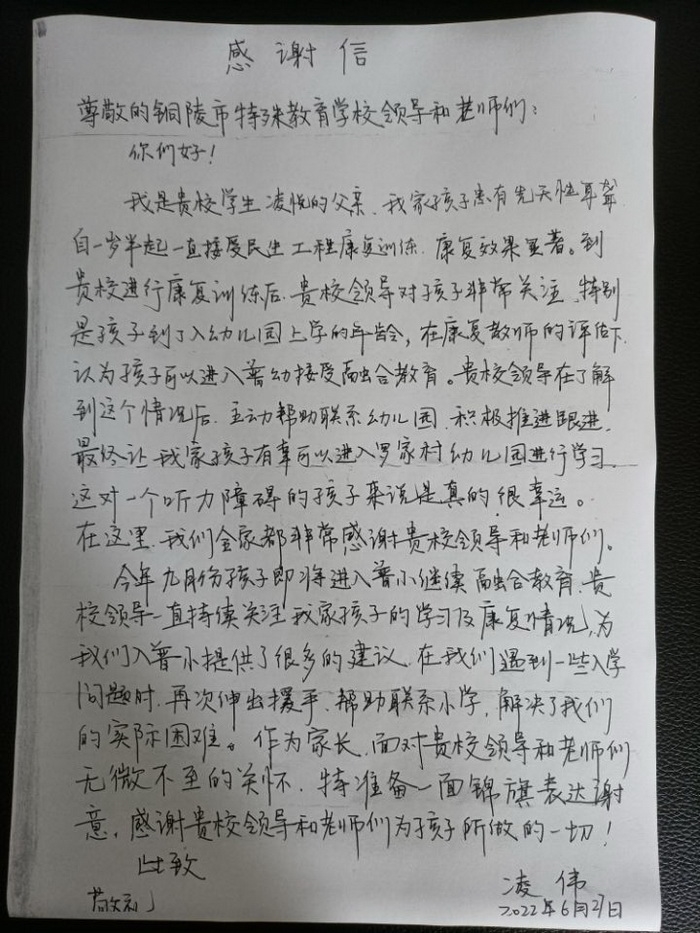 感谢信
尊敬的铜陵市特殊教育学校领导和老师们:
你们好!
我是贵校学生凌悦的父亲、我家孩子患有先天性耳聋
自一岁半起一直接受民生工程康复训练、康复效果显著。到
贵校进行康复训练后、贵校领导对孩子非常关注、特别
是孩子到了入幼儿园上学的年龄,在康复教师的评估下、
认为孩子可以进入普幼接受融合教育。贵校领导在了解
到这个情况后、主动帮助联系幼儿园、积极推进跟进、
最终让我家孩子有幸可以进入罗家村幼儿园进行学习、
这对一个听力障碍的孩子来说是真的很幸运。
在这里、我们全家都非常感谢贵校领导和老师们。
今年九月份孩子即将进入普小继续融合教育、贵
校领导一直持续关注我家孩子的学习及康复情况,为
我们入普小提供了很多的建议、在我们遇到一些入学
问题时、再次伸出援手、帮助联系小学,解决了我们
的实际困难。作为家长、面对贵校领导和老师们
无微不至的关怀、特准备一面锦旗表达谢
意,感谢贵校领导和老师们为孩子所做的一切!
此致
敬礼 凌伟
2022年6月27日